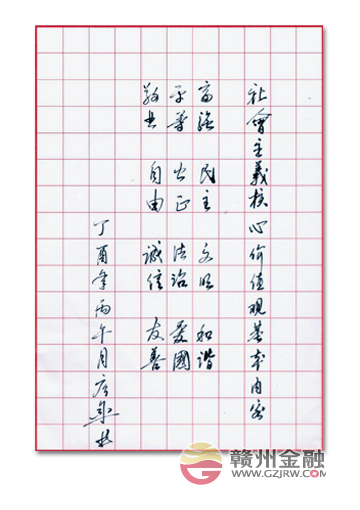 社會主義核心价值观基本内容
富強 民主 文明 和谐
平等 公正 法治 爱國
敬业 自由 诚信 友善
丁酉年丙午月
赣州金融
WWW.GZJRW.COM